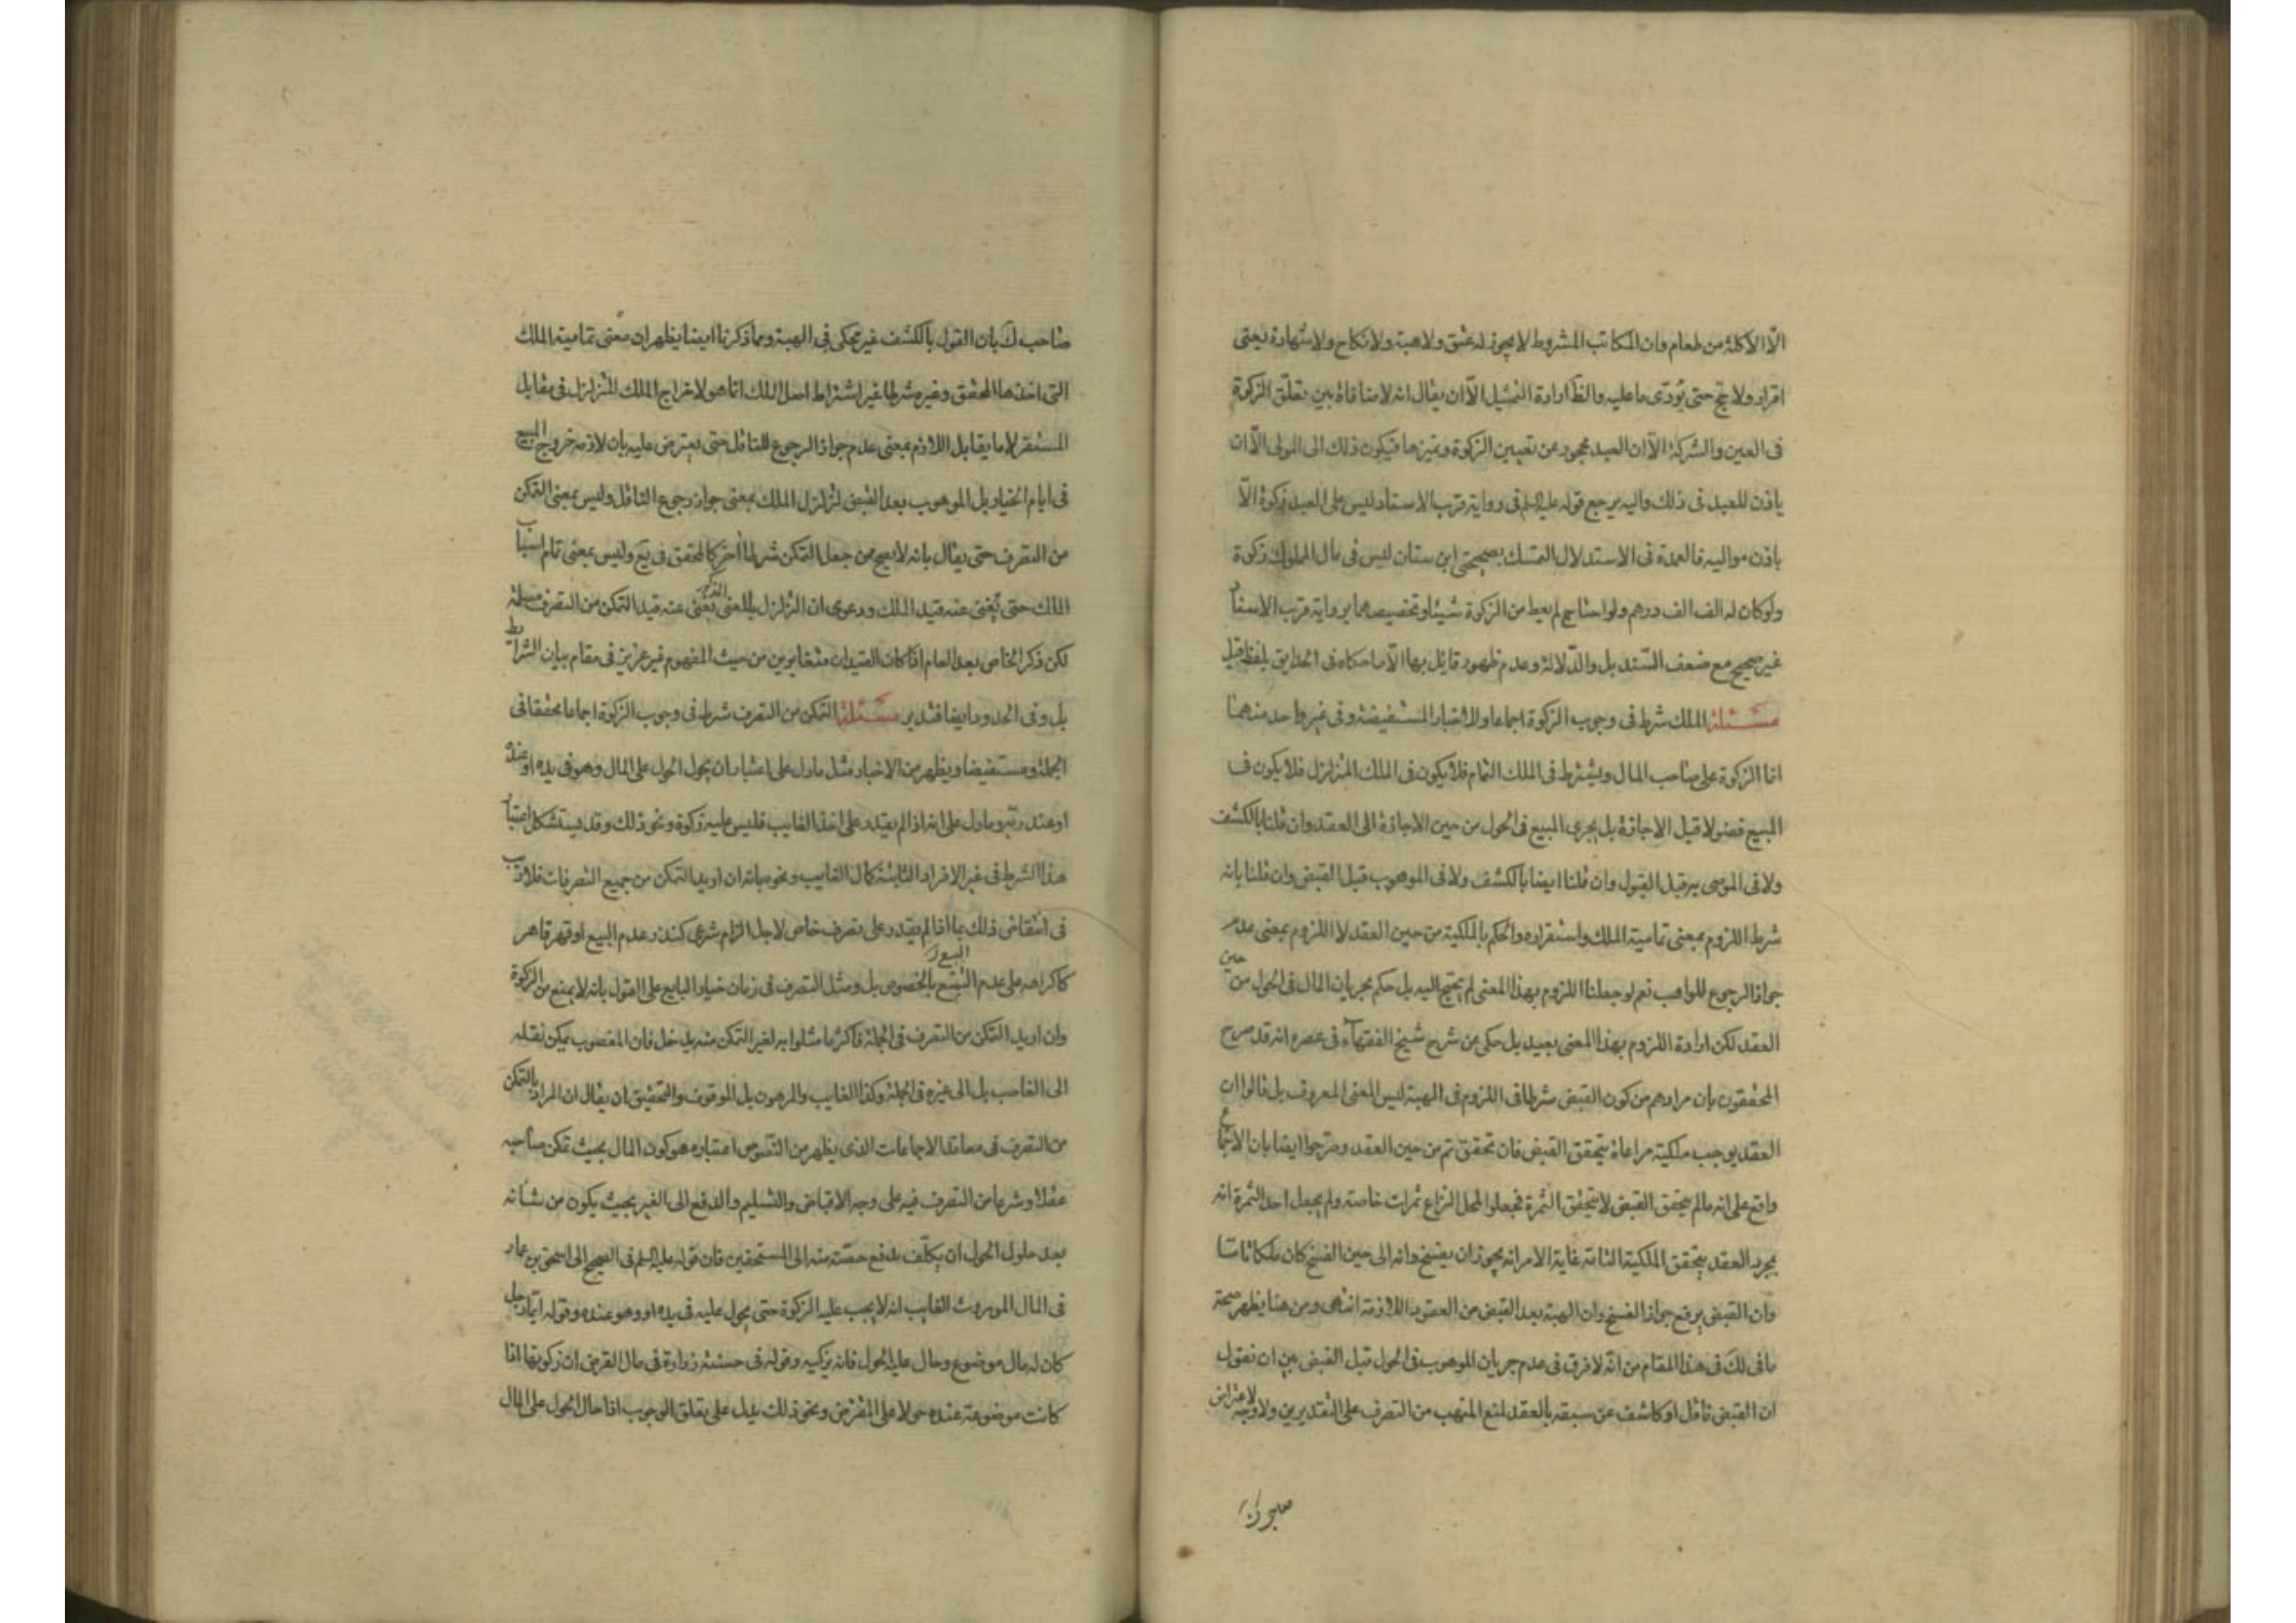 الّا الأكلة من طعام وان المكاتب المشروط لا يجوز له عتق ولا هبة ولا نكاح ولا شهادة يعنى
اقرار ولا حج حتى يؤدّى ما عليه والظّ ارادة التمثيل الّا ان يقال انه لا منافاة بين تعلّق الزكوة
فى العين والشركة الّا ان العبد محجور عن تعيين الزكوة وتميزها فيكون ذلك الى المولى الّا ان
ياذن للعبد فى ذلك واليه يرجع قوله عليه السلم فى رواية قرب الاسناد ليس على العبد زكوة الّا
باذن مواليه فالعمدة فى الاستدلال التمسك بصحيحتى ابن سنان ليس فى مال المملوك زكوة
ولو كان له الف الف درهم ولو احتاج لم يعط من الزكوة شيئا وتخصيصهما برواية قرب الاسناد
غير صحيح مع ضعف السّند بل والدّلالة وعدم ظهور قايل بها الّا ما حكاه فى الحدايق بلفظ قيل
مسئلة الملك شرط فى وجوب الزكوة اجماعا والاخبار المستفيضة وفى غير واحد منها
انما الزكوة على صاحب المال ويشترط فى الملك التمام فلا يكون فى الملك المتزلزل فلا يكون ف
المبيع فضولا قبل الاجازة بل يجرى المبيع فى الحول من حين الاجازة الى العقد وان قلنا بالكشف
ولا فى الموصى به قبل القبول وان قلنا ايضا بالكشف ولا فى الموهوب قبل القبض وان قلنا بانه
شرط اللزوم بمعنى تمامية الملك واستقراره والحكم بالملكية من حين العقد لا اللزوم بمعنى عدم
جواز الرجوع للواهب نعم لو جعلنا اللزوم بهذا المعنى لم يحتج اليه بل حكم بجريان المال فى الحول من حين
العقد لكن ارادة اللزوم بهذا المعنى بعيد بل حكى عن شرح شيخ الفقهاء فى عصره انه قد صرح
المحققون بان مرادهم من كون القبض شرطا فى اللزوم فى الهبة ليس المعنى المعروف بل قالوا ان
العقد يوجب ملكية مراعاة بتحقق القبض فان تحقق تم من حين العقد وصرحوا ايضا بان الاجماع
واقع على انه ما لم يتحقق القبض لا يتحقق الثمرة فجعلوا لمحل النزاع ثمرات خاصة ولم يجعل احد الثمرة انه
بمجرد العقد يتحقق الملكية التامة غاية الامر انه يجوز ان يفسخ وانه الى حين الفسخ كان ملكا تاما
وان القبض يرفع جواز الفسخ وان الهبة بعد القبض من العقود اللازمة انتهى ومن هنا يظهر صحة
ما فى لك فى هذا المقام من انّه لا فرق فى عدم جريان الموهوب فى الحول قبل القبض بين ان نقول
ان القبض ناقل او كاشف عن سبقه بالعقد لمنع المتهب من التصرف على التقديرين ولا وجه لاعتراض
صاحب ك بان القول بالكشف غير محكى فى الهبة ومما ذكرنا ايضا يظهر ان معنى تمامية الملك
التى اخذها المحقق وغيره شرطا غير اشتراط اصل الملك انما هو لاخراج الملك المتزلزل فى مقابل
المستقر لا ما يقابل اللازم بمعنى عدم جواز الرجوع للناقل حتى يعترض عليه بان لازمه خروج المبيع
فى ايام الخيار بل الموهوب بعد القبض لتزلزل الملك بمعنى جواز رجوع الناقل وليس بمعنى التمكن
من التصرف حتى يقال بانه لا يصح ممن جعل التمكن شرطا اخر كالمحقق فى يع وليس بمعنى تمام اسباب
الملك حتى يغنى عنه قيد الملك ودعوى ان التزلزل بالمعنى المذكور يغنى عنه قيد التمكن من التصرف مسلمة
لكن ذكر الخاص بعد العام اذا كان القيدان متغايرين من حيث المفهوم غير عزيز فى مقام بيان الشرائط
بل وفى الحدود ايضا فتدبر مسئلة التمكن من التصرف شرط فى وجوب الزكوة اجماعا محققا فى
الجملة ومستفيضا ويظهر من الاخبار مثل ما دل على اعتبار ان يحول الحول على المال وهو فى يده او عنده
او عند ربّه وما دل على انه اذا لم يقدر على اخذ الغايب فليس عليه زكوة ونحو ذلك وقد يستشكل اعتبار
هذا الشرط فى غير الافراد الثابتة كمال الغايب ونحوه بانه ان اريد التمكن من جميع التصرفات فلا ريب
فى انتقاض ذلك بما اذا لم يقدر على تصرف خاص لاجل الزام شرعى كنذر عدم البيع او قهر قاهر
كاكراهه على عدم البيع بالخصوص بل ومثل التصرف فى زمان خيار البايع على القول بانه لا يمنع من الزكوة
وان اريد التمكن من التصرف فى الجملة فاكثر ما مثلوا به لغير التمكن منه يدخل فان المغصوب يمكن نقله
الى الغاصب بل الى غيره فى الجملة وكذا الغايب والمرهون بل الموقوف والتحقيق ان يقال ان المراد بالتمكن
من التصرف فى معاقد الاجماعات الذى يظهر من النصوص اعتباره هو كون المال بحيث تمكن صاحبه
عقلا وشرعا من التصرف فيه على وجه الاقباض والتسليم والدفع الى الغير بحيث يكون من شانه
بعد حلول الحول ان يكلّف بدفع حصّته منه الى المستحقين فان قوله عليه السلم فى الصحيح الى اسحق بن عمار
فى المال الموروث الغايب انه لا يجب عليه الزكوة حتى يحول عليه فى يده او وهو عنده وقوله ايّما رجل
كان له مال موضوع وحال عليه الحول فانه يزكيه وقوله فى حسنة زرارة فى مال القرض ان زكوتها اذا
كانت موضوعة عنده حولا على المقترض ونحو ذلك يدل على تعلق الوجوب اذا حال الحول على المال